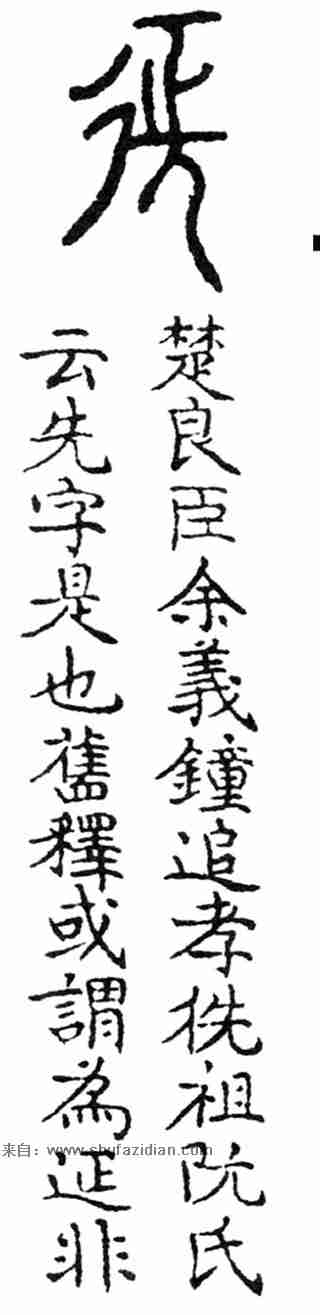 楚良臣余義鐘追孝祖阮氏
云先字是也舊釋或謂為延非
来自：www.shufazidian.com